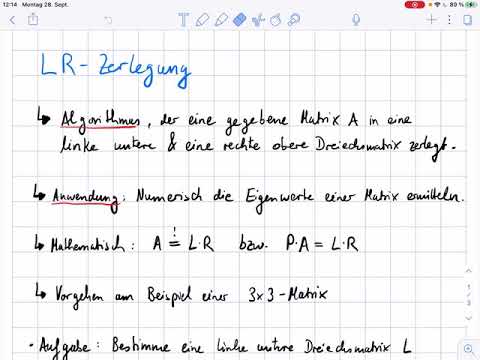 12:14 Montag 28. Sept. 89 %
LR-Zerlegung
↳ Algorithmus, der eine gegebene Matrix A in eine
linke untere & eine rechte obere Dreiecksmatrix zerlegt.
↳ Anwendung: Numerisch die Eigenwerte einer Matrix ermitteln.
↳ Mathematisch: A != L·R bzw. P·A = L·R
↳ Vorgehen am Beispiel einer 3x3-Matrix
· Aufgabe: Bestimme eine linke untere Dreiecksmatrix L
1
3